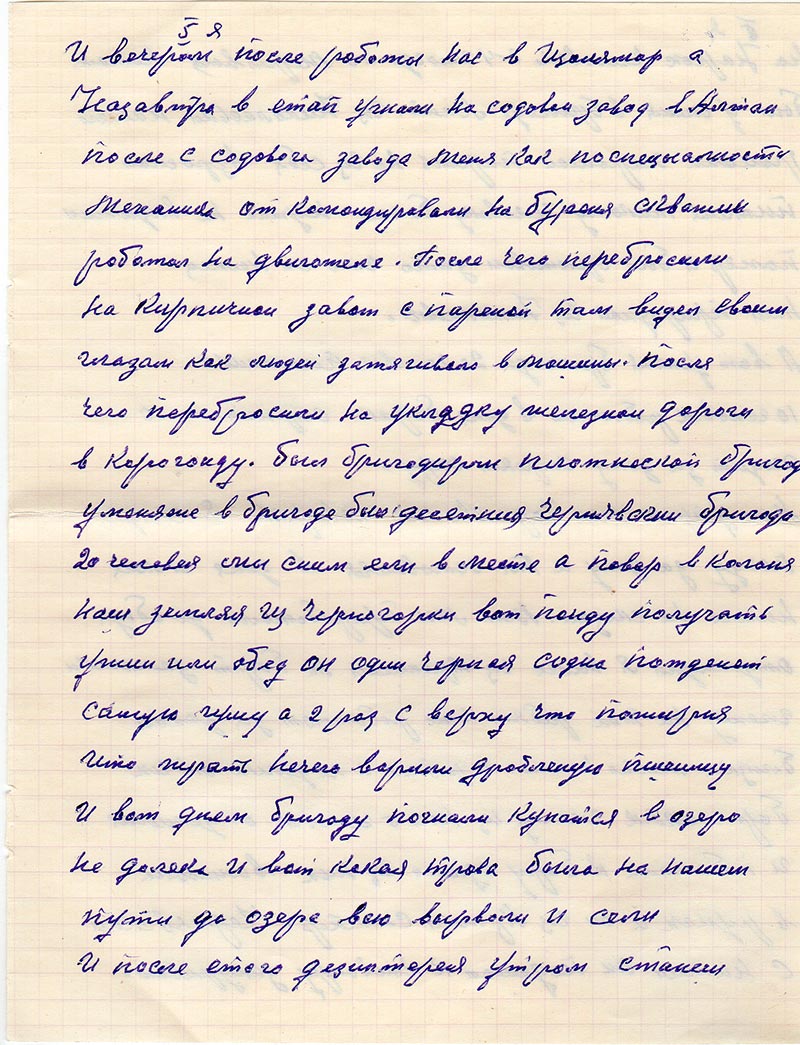 5 я
И вечером после роботы нас в Изолятор а
Назавтра в етап угнали на содовой завод в Алтай
после с содовога завода меня как поспецыальности
механика от командировали на буреня скважин
роботал на двигателе. После чего перебросили
на Кирпичной завот с парекой там видел своим
глазам как людей затягивало в машины. После
чего перебросили на укладку железной дороги
в Корогонду. был бригодиром плотнеской бригод
уменяже в бригоде был десетния Чернявскии бригода
20 человек мы сним ели в месте а повар в Колоня
наш земляя из Черногорки вот пойду получать
ужин или обед он один черпая содна пожденет
самую гушу а 2 роз с верху что пожирня
што жрать нечего ворили дробленую пшеницу
И вот днем бригоду погнали купатся в озеро
не далека и вот какая трова была на нашем
пути до озера всю вырвали и сели
И после етого дезинтерея утром станеш